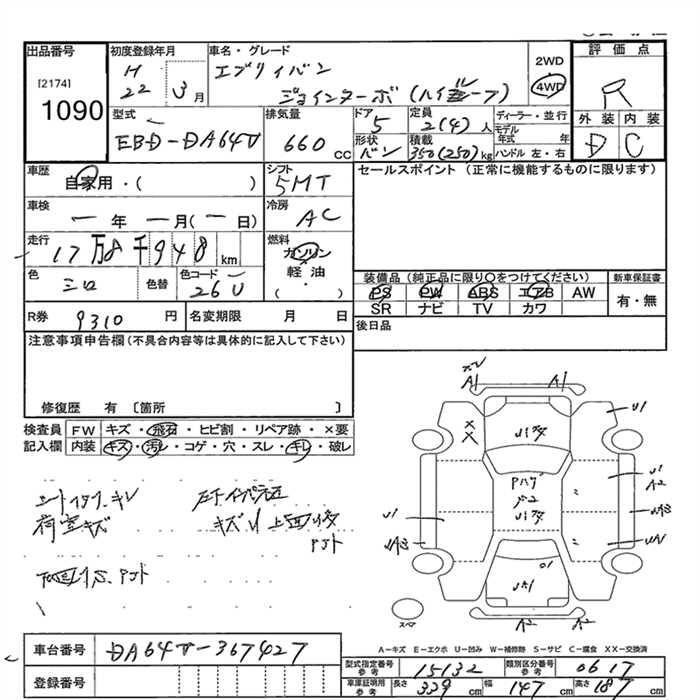 出品番号
[2174]
1090
初度登録年月
H
22 3月
車名・グレード
エブリィバン
ジョインターボ(ハイルーフ)
2WD
4WD
評価点
R
外装 内装
D C
型式
EBD-DA64V
排気量
660 cc
ドア
5
形状
バン
定員
2(4)人
積載
350(250)kg
ディーラー・並行
モデル年式 年
ハンドル 左・右
車歴
自家用・( )
シフト
5MT
セールスポイント(正常に機能するものに限ります)
車検
一年 一月(一日)
冷房
AC
走行
17万8千948km
燃料
ガソリン
軽油
( ・ )
色
シロ
色替
色コード
26U
装備品(純正品に限り〇をつけてください)
PS PW ABS エアB AW
SR ナビ TV カワ
新車保証書
有・無
R券 9310円
名変期限 月 日
後日品
注意事項申告欄(不具合内容等は具体的に記入して下さい)
修復歴 有〔箇所 〕
検査員 FW キズ・飛石・ヒビ割・リペア跡・×要
記入欄 内装 キズ・汚レ・コゲ・穴・スレ・キレ・破レ
シートイタミ、キレ
荷室キズ
A1 A1
U1
U1
A2
U1
A2 A2
スペア
A-キズ E-エクボ U-凹み W-補修跡 S-サビ C-腐食 XX-交換済
車台番号
DA64V-367427
登録番号
型式指定番号 参考 15132
類別区分番号 参考 0617
車庫証明用 参考 長さ 339cm 幅 147cm 高さ 187cm